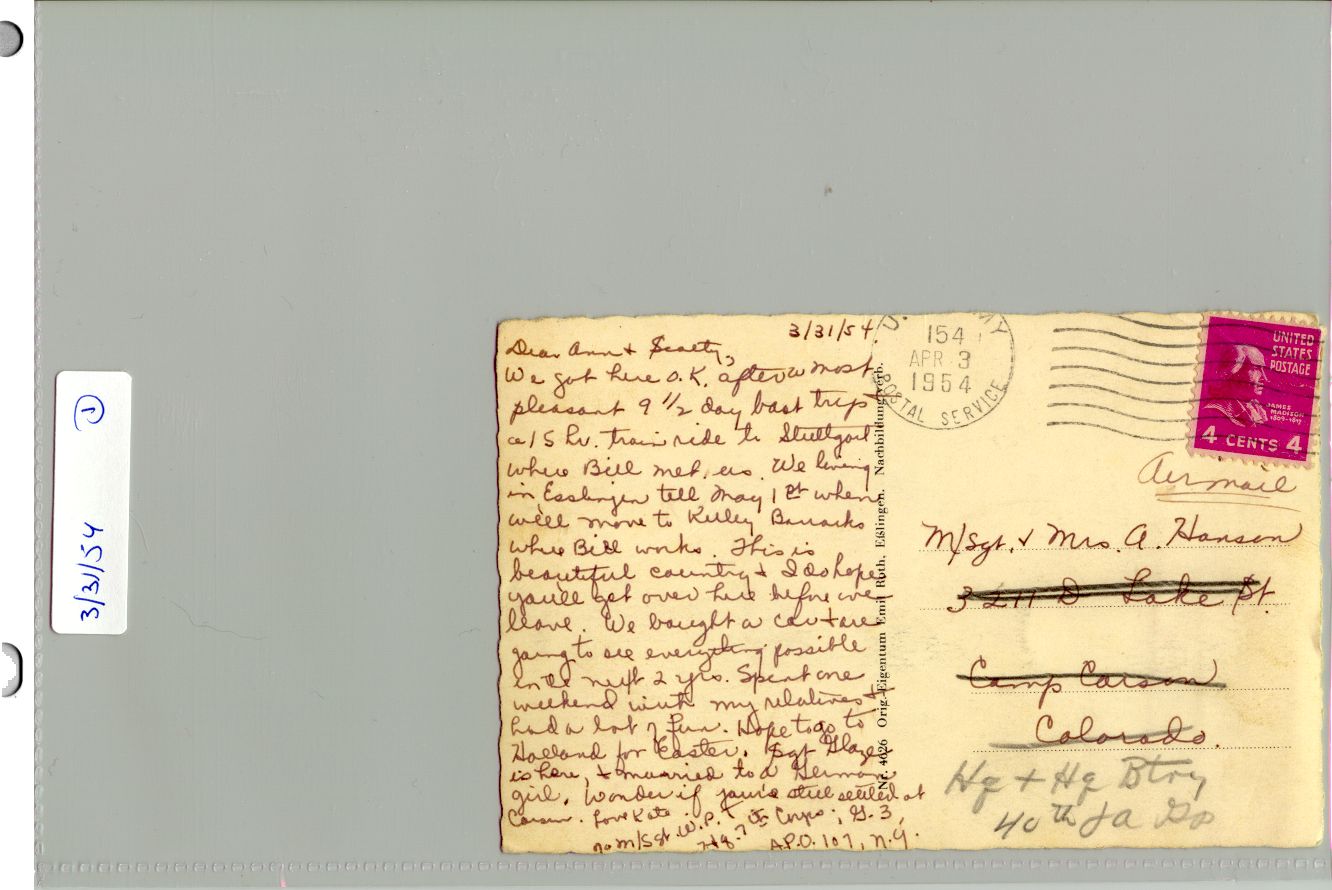 3/31/54 1
3/31/54.
Dear Ann & Scotty,
We got here O.K. after a most
pleasant 9 1/2 day boat trip &
a 15 hr. train ride to Stuttgart
where Bill met us. We living
in Esslingen till May 1st when
we'll move to Kelley Barracks
where Bill works. This is
beautiful country & I do hope
you'll get over here before we
leave. We bought a car & are
going to see everything possible
in the next 2 yrs. Spent one
weekend with my relatives &
had a lot of fun. Hope to go to
Holland for Easter. Sgt Glaze
is here, & married to a German
girl. Wonder if you're still settled at
Carson. Love Kate
% M/Sgt W.P.
Hq 7th Corps; G.3,
A.P.O. 107, N.Y.
Nr. 4026 Orig.-Eigentum Emil Roth, Eßlingen. Nachbildung verb.
U. MY
154
APR 3
1954
POSTAL SERVICE
UNITED
STATES
POSTAGE
JAMES
MADISON
1809-1817
4 CENTS 4
Air mail
M/Sgt. & Mrs. A. Hanson
3211 D Lake St.
Camp Carson
Colorado.
Hq + Hq Btry
40th FA Gp